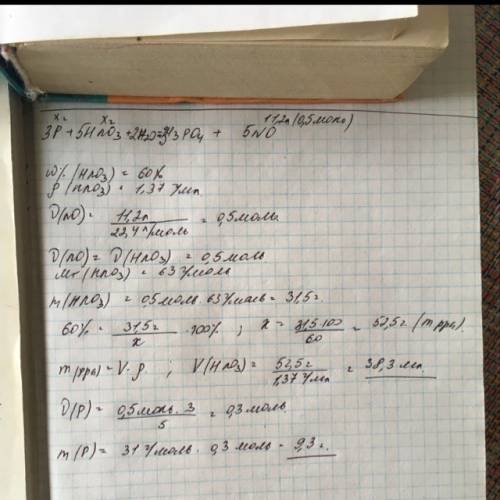 x₁ x₂ 11,2л (0,5 моль)
3P + 5HNO₃ + 2H₂O = 3H₃PO₄ + 5NO
w% (HNO₃) = 60%
ρ (HNO₃) = 1,37 г/мл
ν(NO) = 11,2л / 22,4 л/моль = 0,5 моль
ν(NO) = ν(HNO₃) = 0,5 моль
Mr (HNO₃) = 63 г/моль
m(HNO₃) = 0,5 моль · 63 г/моль = 31,5 г.
60% = 31,5г / x · 100% ; x = 31,5·100 / 60 = 52,5 г (m рра)
m(рра) = V·ρ ; V(HNO₃) = 52,5 г / 1,37 г/мл = 38,3 мл
ν(P) = 0,5 моль · 3 / 5 = 0,3 моль
m(P) = 31 г/моль · 0,3 моль = 9,3 г.